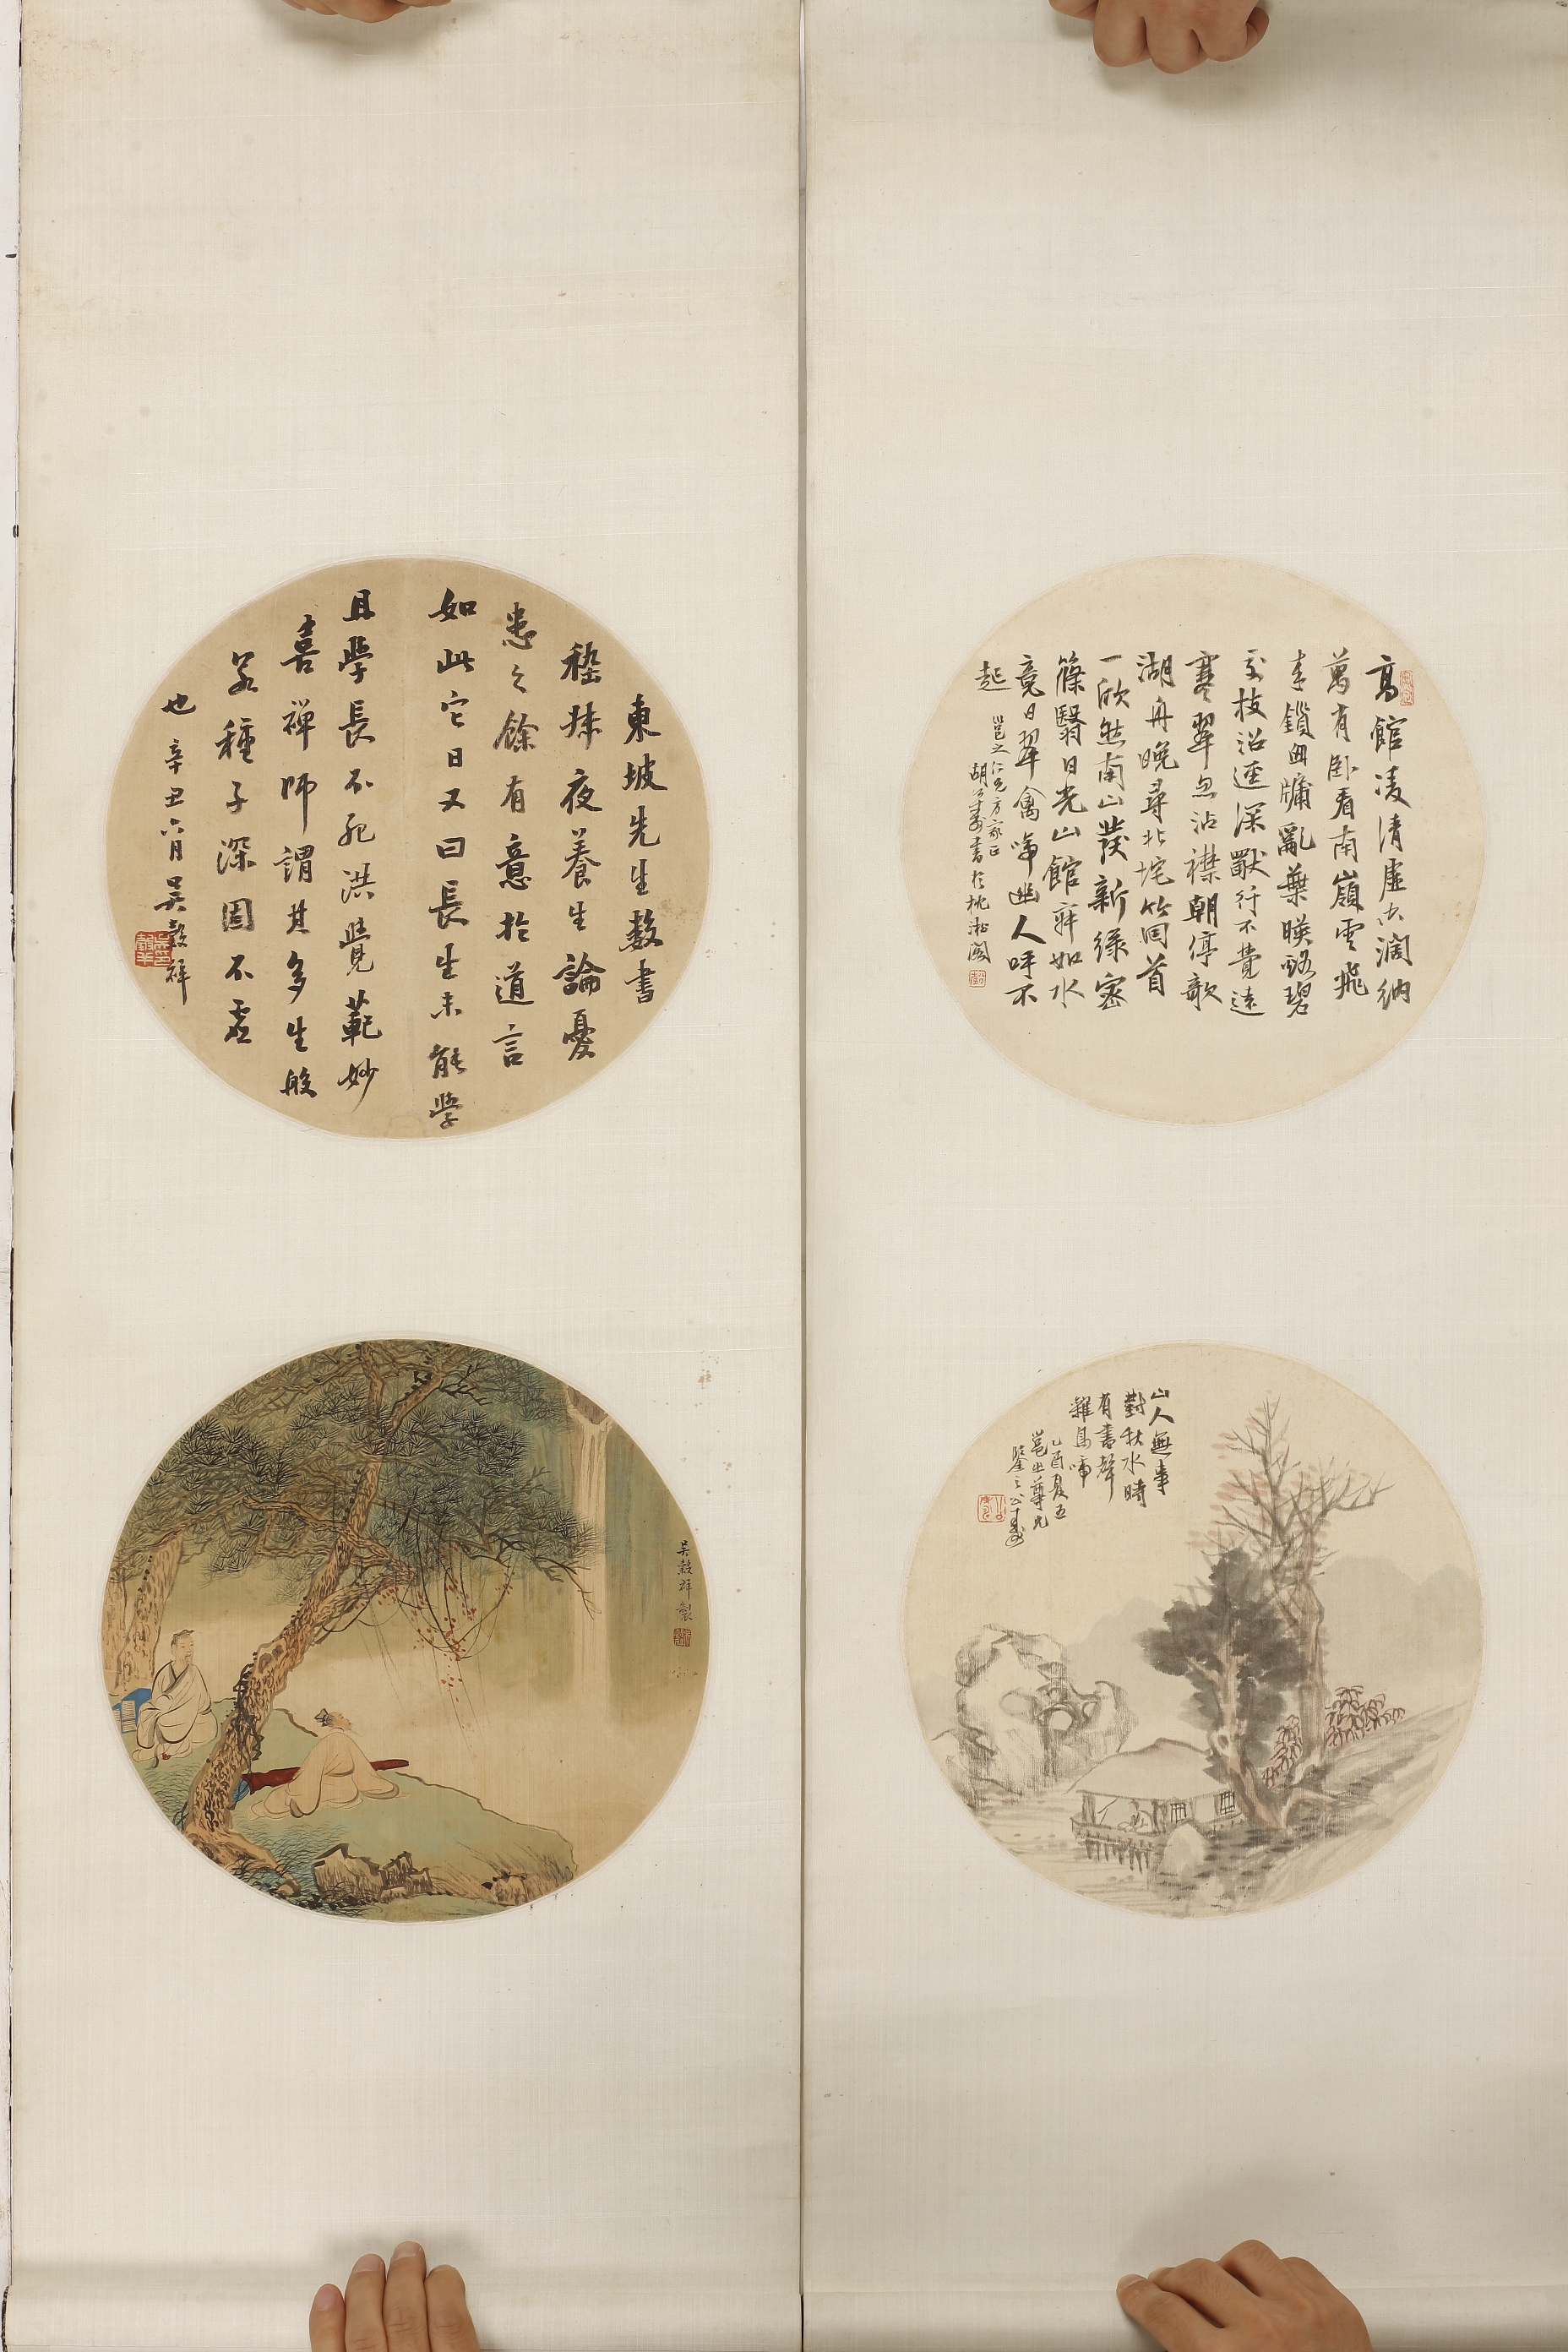 高館凌清虛江闊納
萬有卧看南嶺雲飛
來鎖幽牖亂葉暎酩碧
交枝沿逕深獸行不覺遠
寒翠忽沾襟朝停歌
湖舟晚尋北垞竹回首
一欣然南山發新綠密
篠翳日光山館靜如水
竟日翠禽啼幽人呼不
起
邕之仁兄方家正
胡公壽書於枕湖閣
山人無事
對秋水時
有書聲
雜鳥啼
乙酉夏五
邕之尊兄
鑒之公壽
東坡先生數書
嵇叔夜養生論憂
患之餘有意於道言
如此它日又曰長生未能學
且學長不死洪覺範妙
喜禪師謂其多生般
若種子深固不虛
也
辛丑六月吳穀祥
吳穀祥製